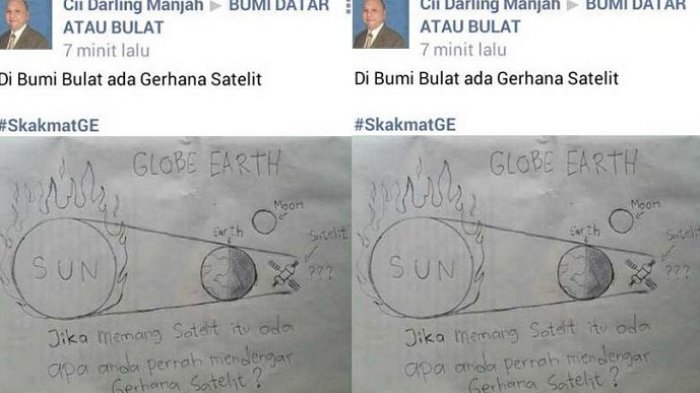 Cii Darling Manjah ▶ BUMI DATAR
ATAU BULAT
7 minit lalu
Di Bumi Bulat ada Gerhana Satelit
#SkakmatGE
GLOBE EARTH
Moon
Earth
Satelit
SUN
???
Jika memang Satelit itu ada
apa anda pernah mendengar
Gerhana Satelit?
Cii Darling Manjah ▶ BUMI DATAR
ATAU BULAT
7 minit lalu
Di Bumi Bulat ada Gerhana Satelit
#SkakmatGE
GLOBE EARTH
Moon
Earth
Satelit
SUN
???
Jika memang Satelit itu ada
apa anda pernah mendengar
Gerhana Satelit?